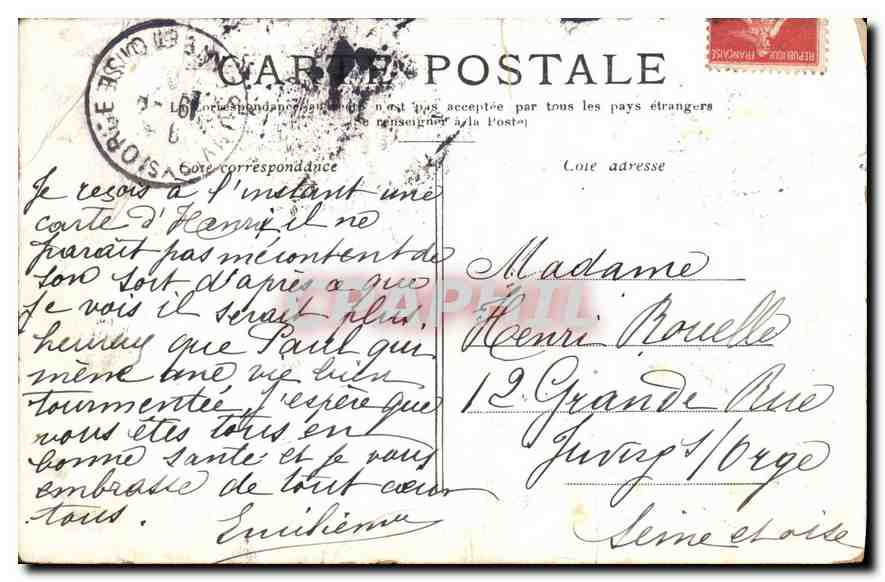 CARTE POSTALE
La correspondance au recto n'est pas acceptée par tous les pays étrangers
(Se renseigner à la Poste)
Cote correspondance
Cote adresse
REPUBLIQUE FRANÇAISE
SEINE ET OISE
Je reçois à l'instant une
carte d'Henri il ne
parait pas mécontent de
son sort d'après ce que
je vois il serait plus
heureux que Paul qui
mène une vie bien
tourmentée, j'espère que
vous êtes tous en
bonne santé et je vous
embrasse de tout cœur
tous. Emilienne
Madame
Henri Rouelle
12 Grande Rue
Juvisy s/ Orge
Seine et oise
CPAPHIL